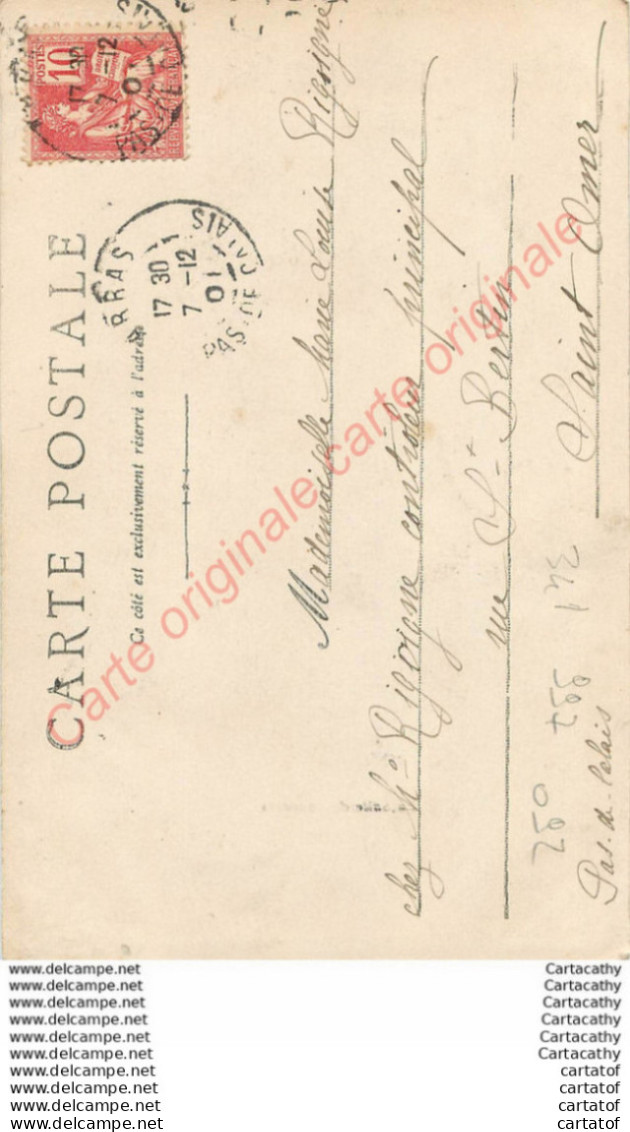 CARTE POSTALE
Ce côté est exclusivement réservé à l'adresse
POSTES
10
17 30
7 -12
01
ARRAS
17 30
7 -12
01
PAS-DE-CALAIS
Carte originale carte originale
Mademoiselle Marie Louise Rigoigne
chez Mr Rigoigne contrôleur principal
rue St Bertin
Saint Omer
Pas-de-Calais
250
www.delcampe.net Cartacathy
www.delcampe.net Cartacathy
www.delcampe.net Cartacathy
www.delcampe.net Cartacathy
www.delcampe.net Cartacathy
www.delcampe.net Cartacathy
www.delcampe.net cartatof
www.delcampe.net cartatof
www.delcampe.net cartatof
www.delcampe.net cartatof